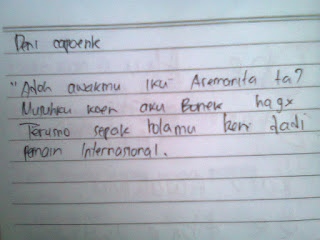 Deni capoenk
"Adoh awakmu iku Aremanita ta?
Musuhku koen aku Bonek hagx
Terusno sepak bolamu ben dadi
pemain Internasional.